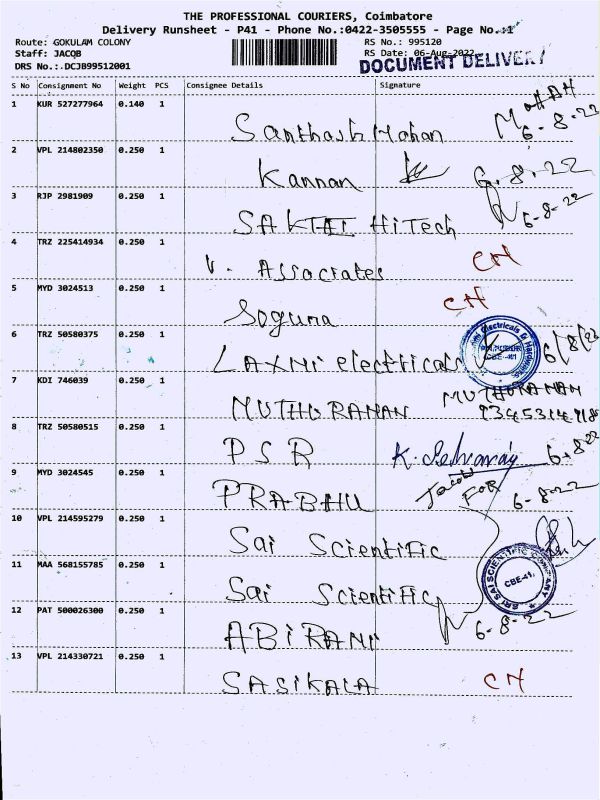 THE PROFESSIONAL COURIERS, Coimbatore
Delivery Runsheet - P41 - Phone No.:0422-3505555 - Page No.:1
Route: GOKULAM COLONY RS No.: 995120
Staff: JACOB RS Date: 06-Aug-2022
DRS No.:.DCJB99512001 DOCUMENT DELIVERY
S No Consignment No Weight PCS Consignee Details Signature
1 KUR 527277964 0.140 1
Santhosh Mohan 6-8-22
2 VPL 214802350 0.250 1
Kannan 6.8.22
3 RJP 2981909 0.250 1
SAKTHI HiTech 6-8-22
4 TRZ 225414934 0.250 1
V. Associates CN
5 MYD 3024513 0.250 1
Soguna CN
6 TRZ 50580375 0.250 1
LAXMI electricals 6/8/22
7 KDI 746039 0.250 1
MUTHURAMAN MUTHURAMAN
8 TRZ 50580515 0.250 1
PSR K. Selvaraj 6.8-22
9 MYD 3024545 0.250 1
PRABHU Jacob FOR 6-8-22
10 VPL 214595279 0.250 1
Sai Scientific
11 MAA 568155785 0.250 1
Sai Scientific SRI SAI SCIENTIFIC COMPANY CBE-41.
12 PAT 500026300 0.250 1
ABIRAMI 6-8-22
13 VPL 214330721 0.250 1
SASIKALA CN